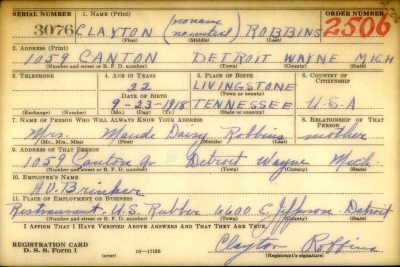 SERIAL NUMBER 1. NAME (Print) ORDER NUMBER
3076 CLAYTON (no name ROBBINS 2506
(First) (Middle) (Last)
2. ADDRESS (Print)
1059 CANTON DETROIT WAYNE MICH
(Number and street or R. F. D. number) (Town) (County) (State)
3. TELEPHONE 4. AGE IN YEARS 5. PLACE OF BIRTH 6. COUNTRY OF CITIZENSHIP
22 LIVINGSTONE
(Town or county)
DATE OF BIRTH
9-23-1918 TENNESSEE U.S.A
(Exchange) (Number) (Mo.) (Day) (Yr.) (State or country)
7. NAME OF PERSON WHO WILL ALWAYS KNOW YOUR ADDRESS 8. RELATIONSHIP OF THAT PERSON
Mrs. Maude Daisy Robbins mother
(Mr., Mrs., Miss) (First) (Middle) (Last)
9. ADDRESS OF THAT PERSON
1059 Canton Av. Detroit Wayne Mich
(Number and street or R. F. D. number) (Town) (County) (State)
10. EMPLOYER'S NAME
11. PLACE OF EMPLOYMENT OR BUSINESS
Restraurant U.S. Rubber 6600 E. Jefferson Detroit
I AFFIRM THAT I HAVE VERIFIED ABOVE ANSWERS AND THAT THEY ARE TRUE.
REGISTRATION CARD
D. S. S. Form 1 (over) 16—17105
Clayton Robbins
(Registrant's signature)